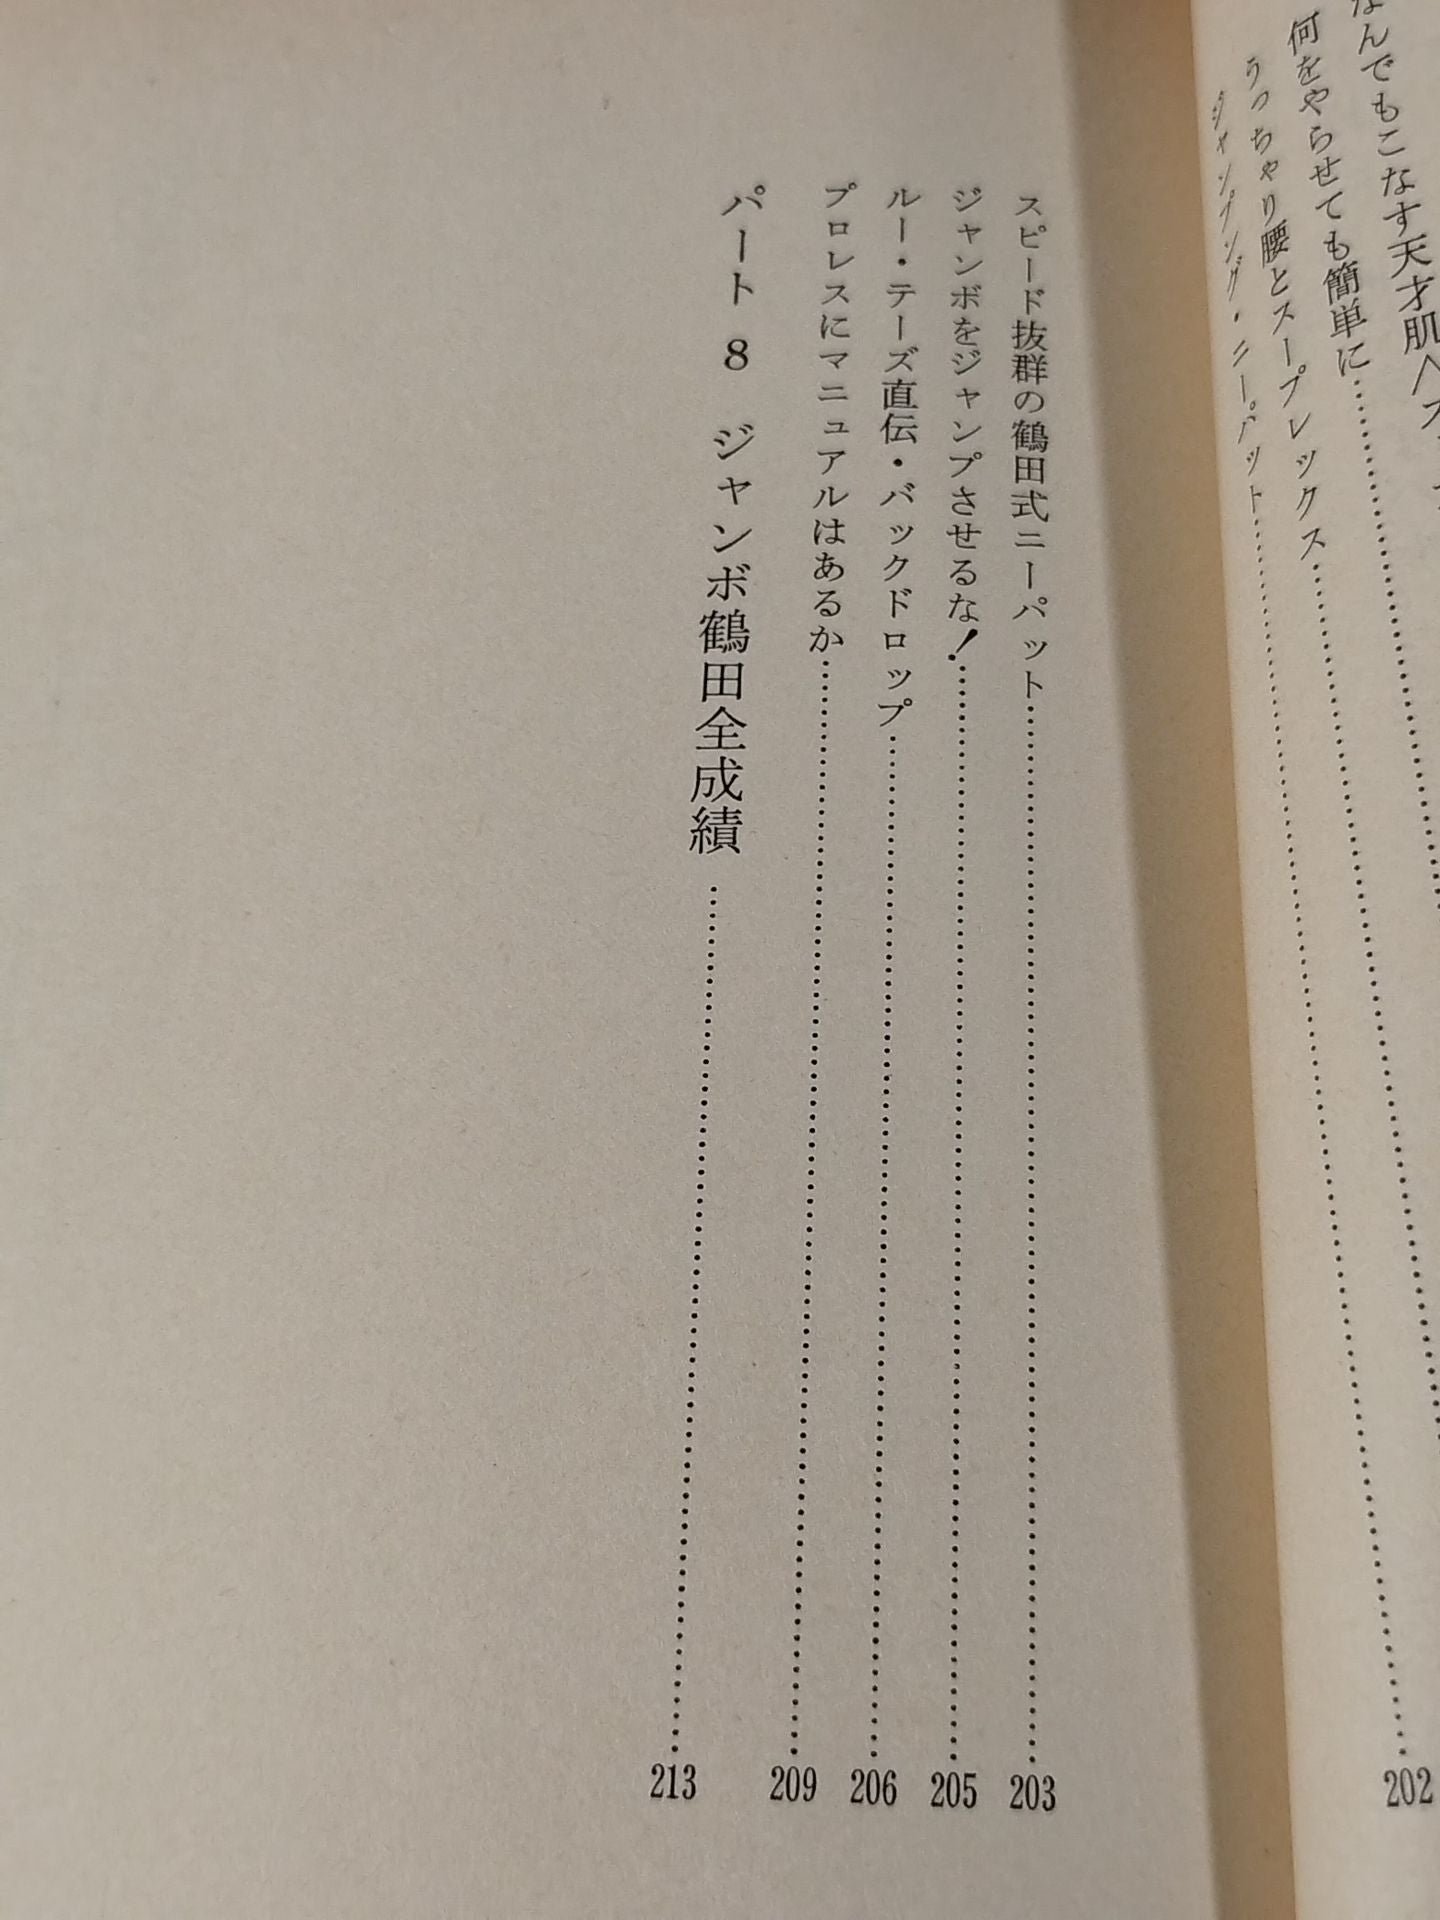 なんでもこなす天才肌
何をやらせても簡単に……
うっちゃり腰とスープレックス……202
ジャンピング・ニーパット……
スピード抜群の鶴田式ニーパット……203
ジャンボをジャンプさせるな!……205
ルー・テーズ直伝・バックドロップ……206
プロレスにマニュアルはあるか……209
パート 8 ジャンボ鶴田全成績……213